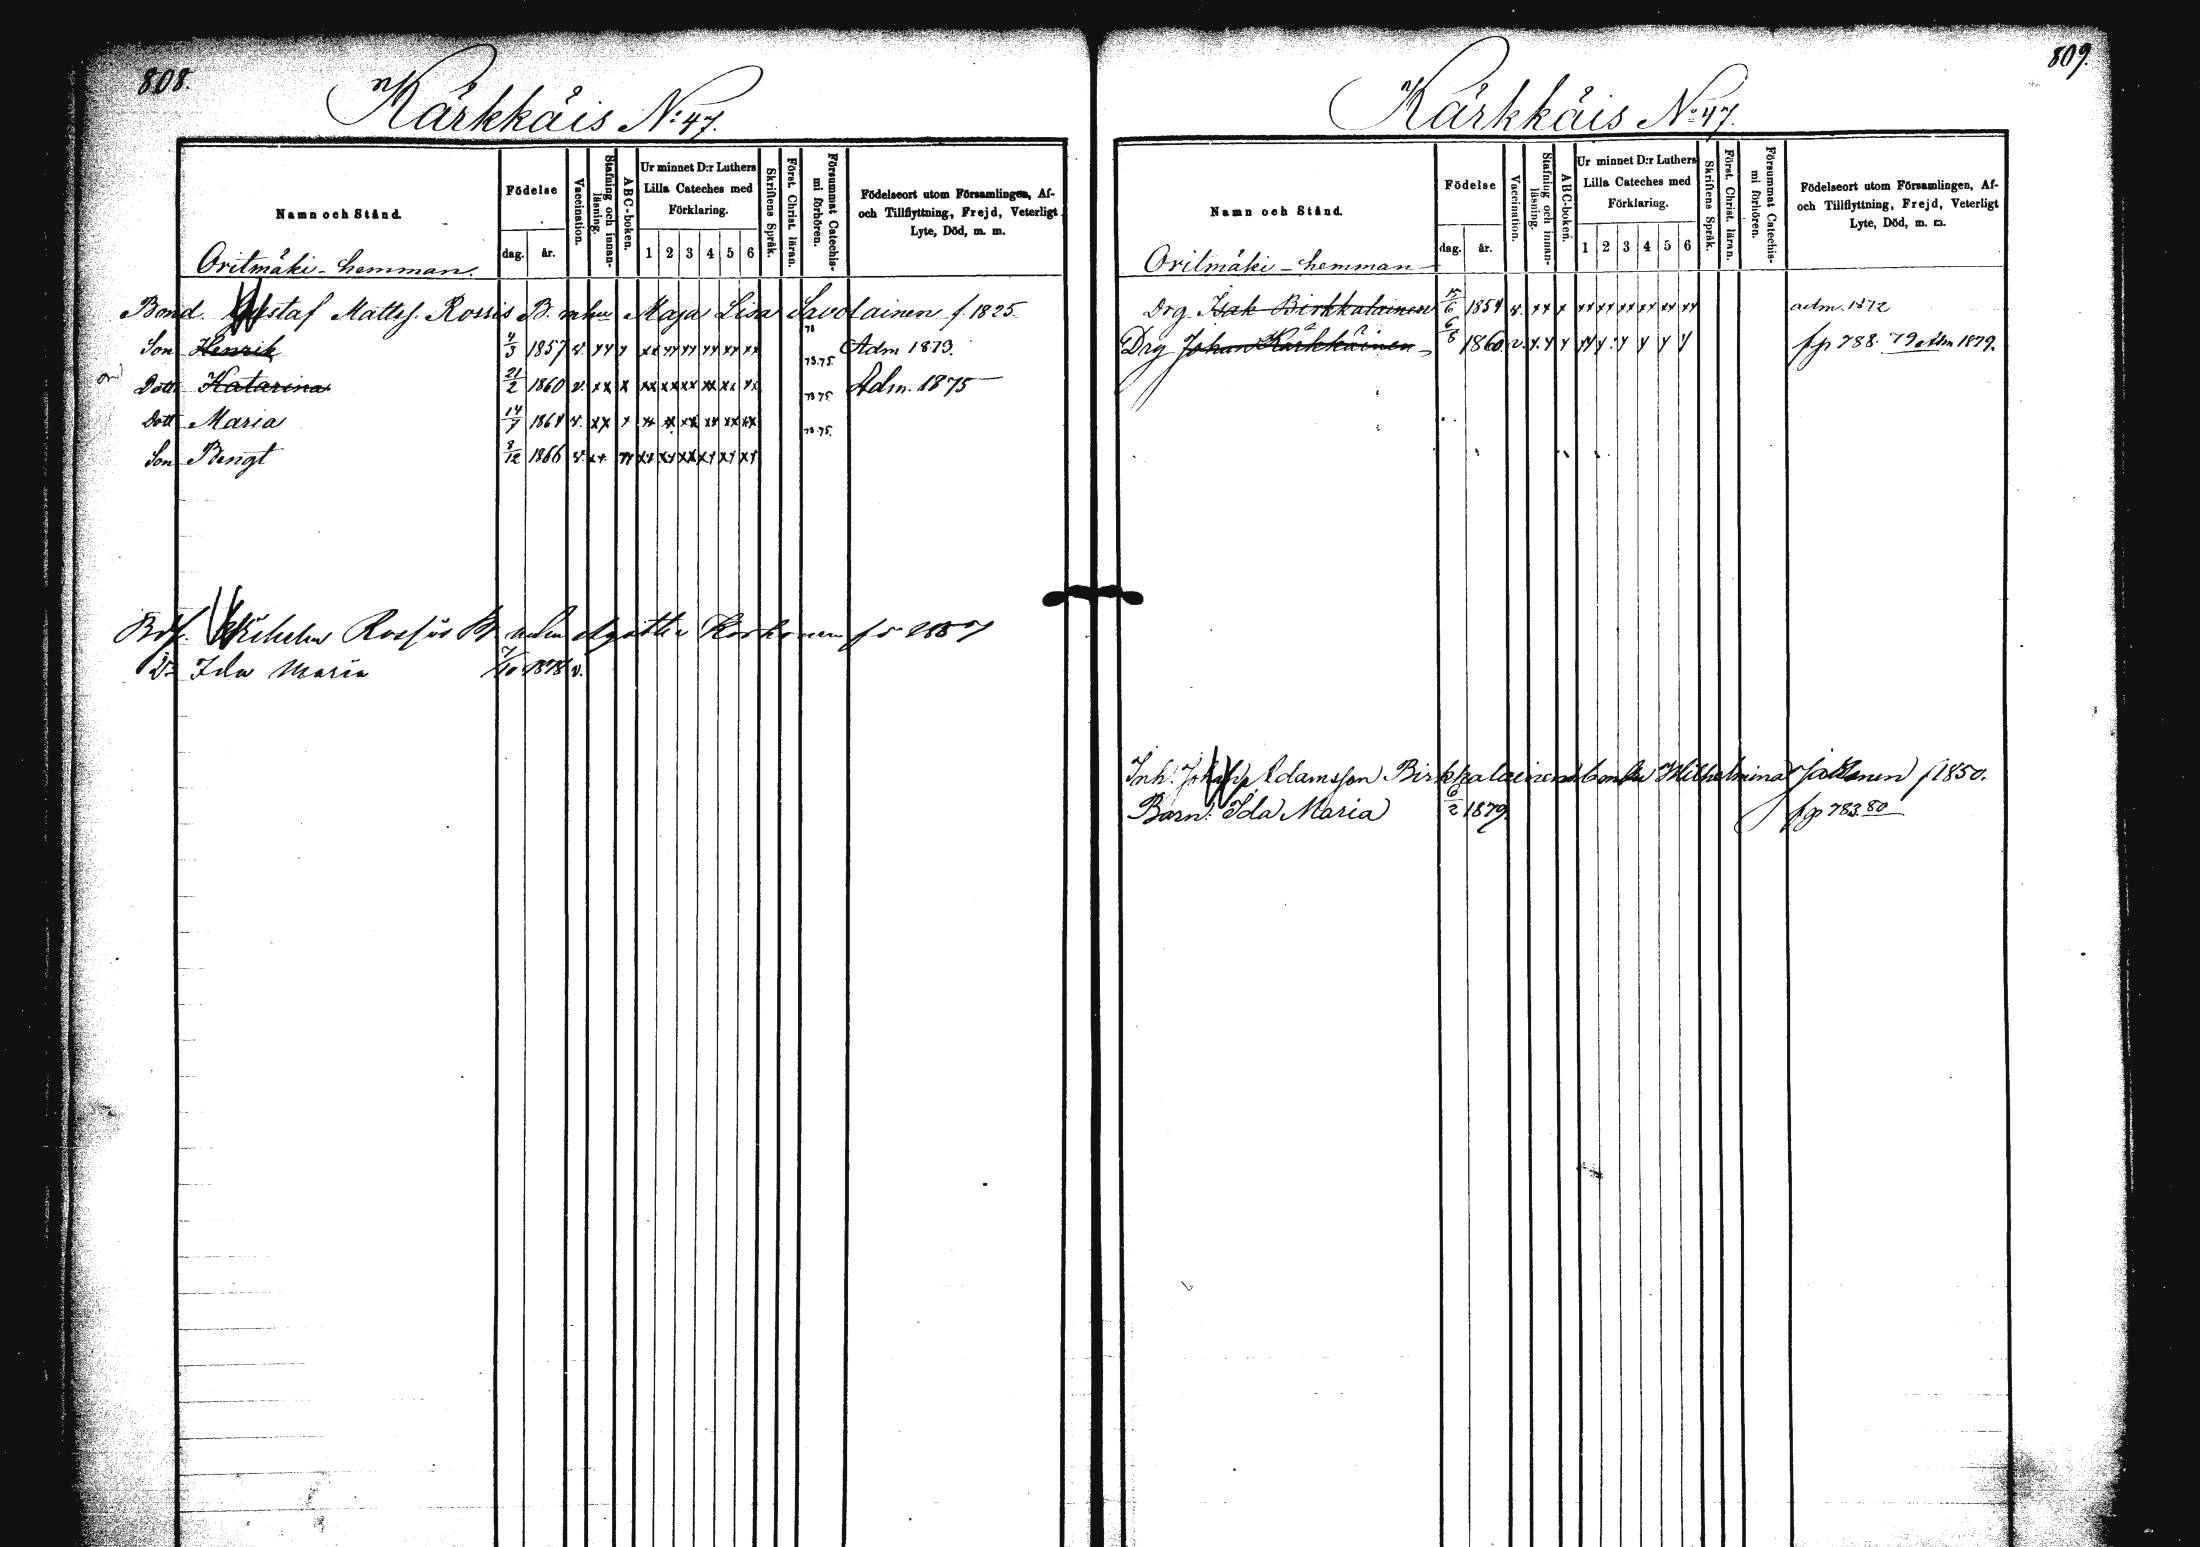 808.
Kärkkäis No: 47.
Namn och Stånd.
Födelse
dag. år.
Vaccination.
Stafning och innan-
läsning.
ABC-boken.
Ur minnet D:r Luthers
Lilla Cateches med
Förklaring.
1 2 3 4 5 6
Skriftens Språk.
Först. Christ. läran.
Försummat Catechis-
mi förhören.
Födelseort utom Församlingen, Af-
och Tillflyttning, Frejd, Veterligt
Lyte, Död, m. m.
Oritmäki - hemman.
Bond. Gustaf Mattss. Rossis B. m hu Maja Lisa Savolainen f. 1825.
Son Henrik 4/3 1857 v. xx x xx xx xx xx xx 73 Adm 1873.
Dott Katarina 21/2 1860 v. xx x xx xx xx xx xx xx 73.75. Adm. 1875
Dott Maria 14/7 1864 v. xx x xx xx xx xx xx xx 73 75.
Son Bengt 8/12 1866 v. xx xx xx xx xx xx xx xx 73.75.
Wilhelm
Ida Maria 7/10 1878 v.
809.
Kärkkäis No: 47.
Namn och Stånd.
Födelse
dag. år.
Vaccination.
Stafning och innan-
läsning.
ABC-boken.
Ur minnet D:r Luthers
Lilla Cateches med
Förklaring.
1 2 3 4 5 6
Skriftens Språk.
Först. Christ. läran.
Försummat Catechis-
mi förhören.
Födelseort utom Församlingen, Af-
och Tillflyttning, Frejd, Veterligt
Lyte, Död, m. m.
Oritmäki - hemman
Drg. Isak Birkkalainen 15/6 1854 v. xx x xx xx xx xx xx xx adm. 1872
Drg Johan Kärkkäinen 6/8 1860 v. x x x fp 788. 79 Adm 1879.
Inh. Adamsson Birkkalainen Wilhelmina f 1850.
Barn: Ida Maria 6/2 1879. fp 783.80